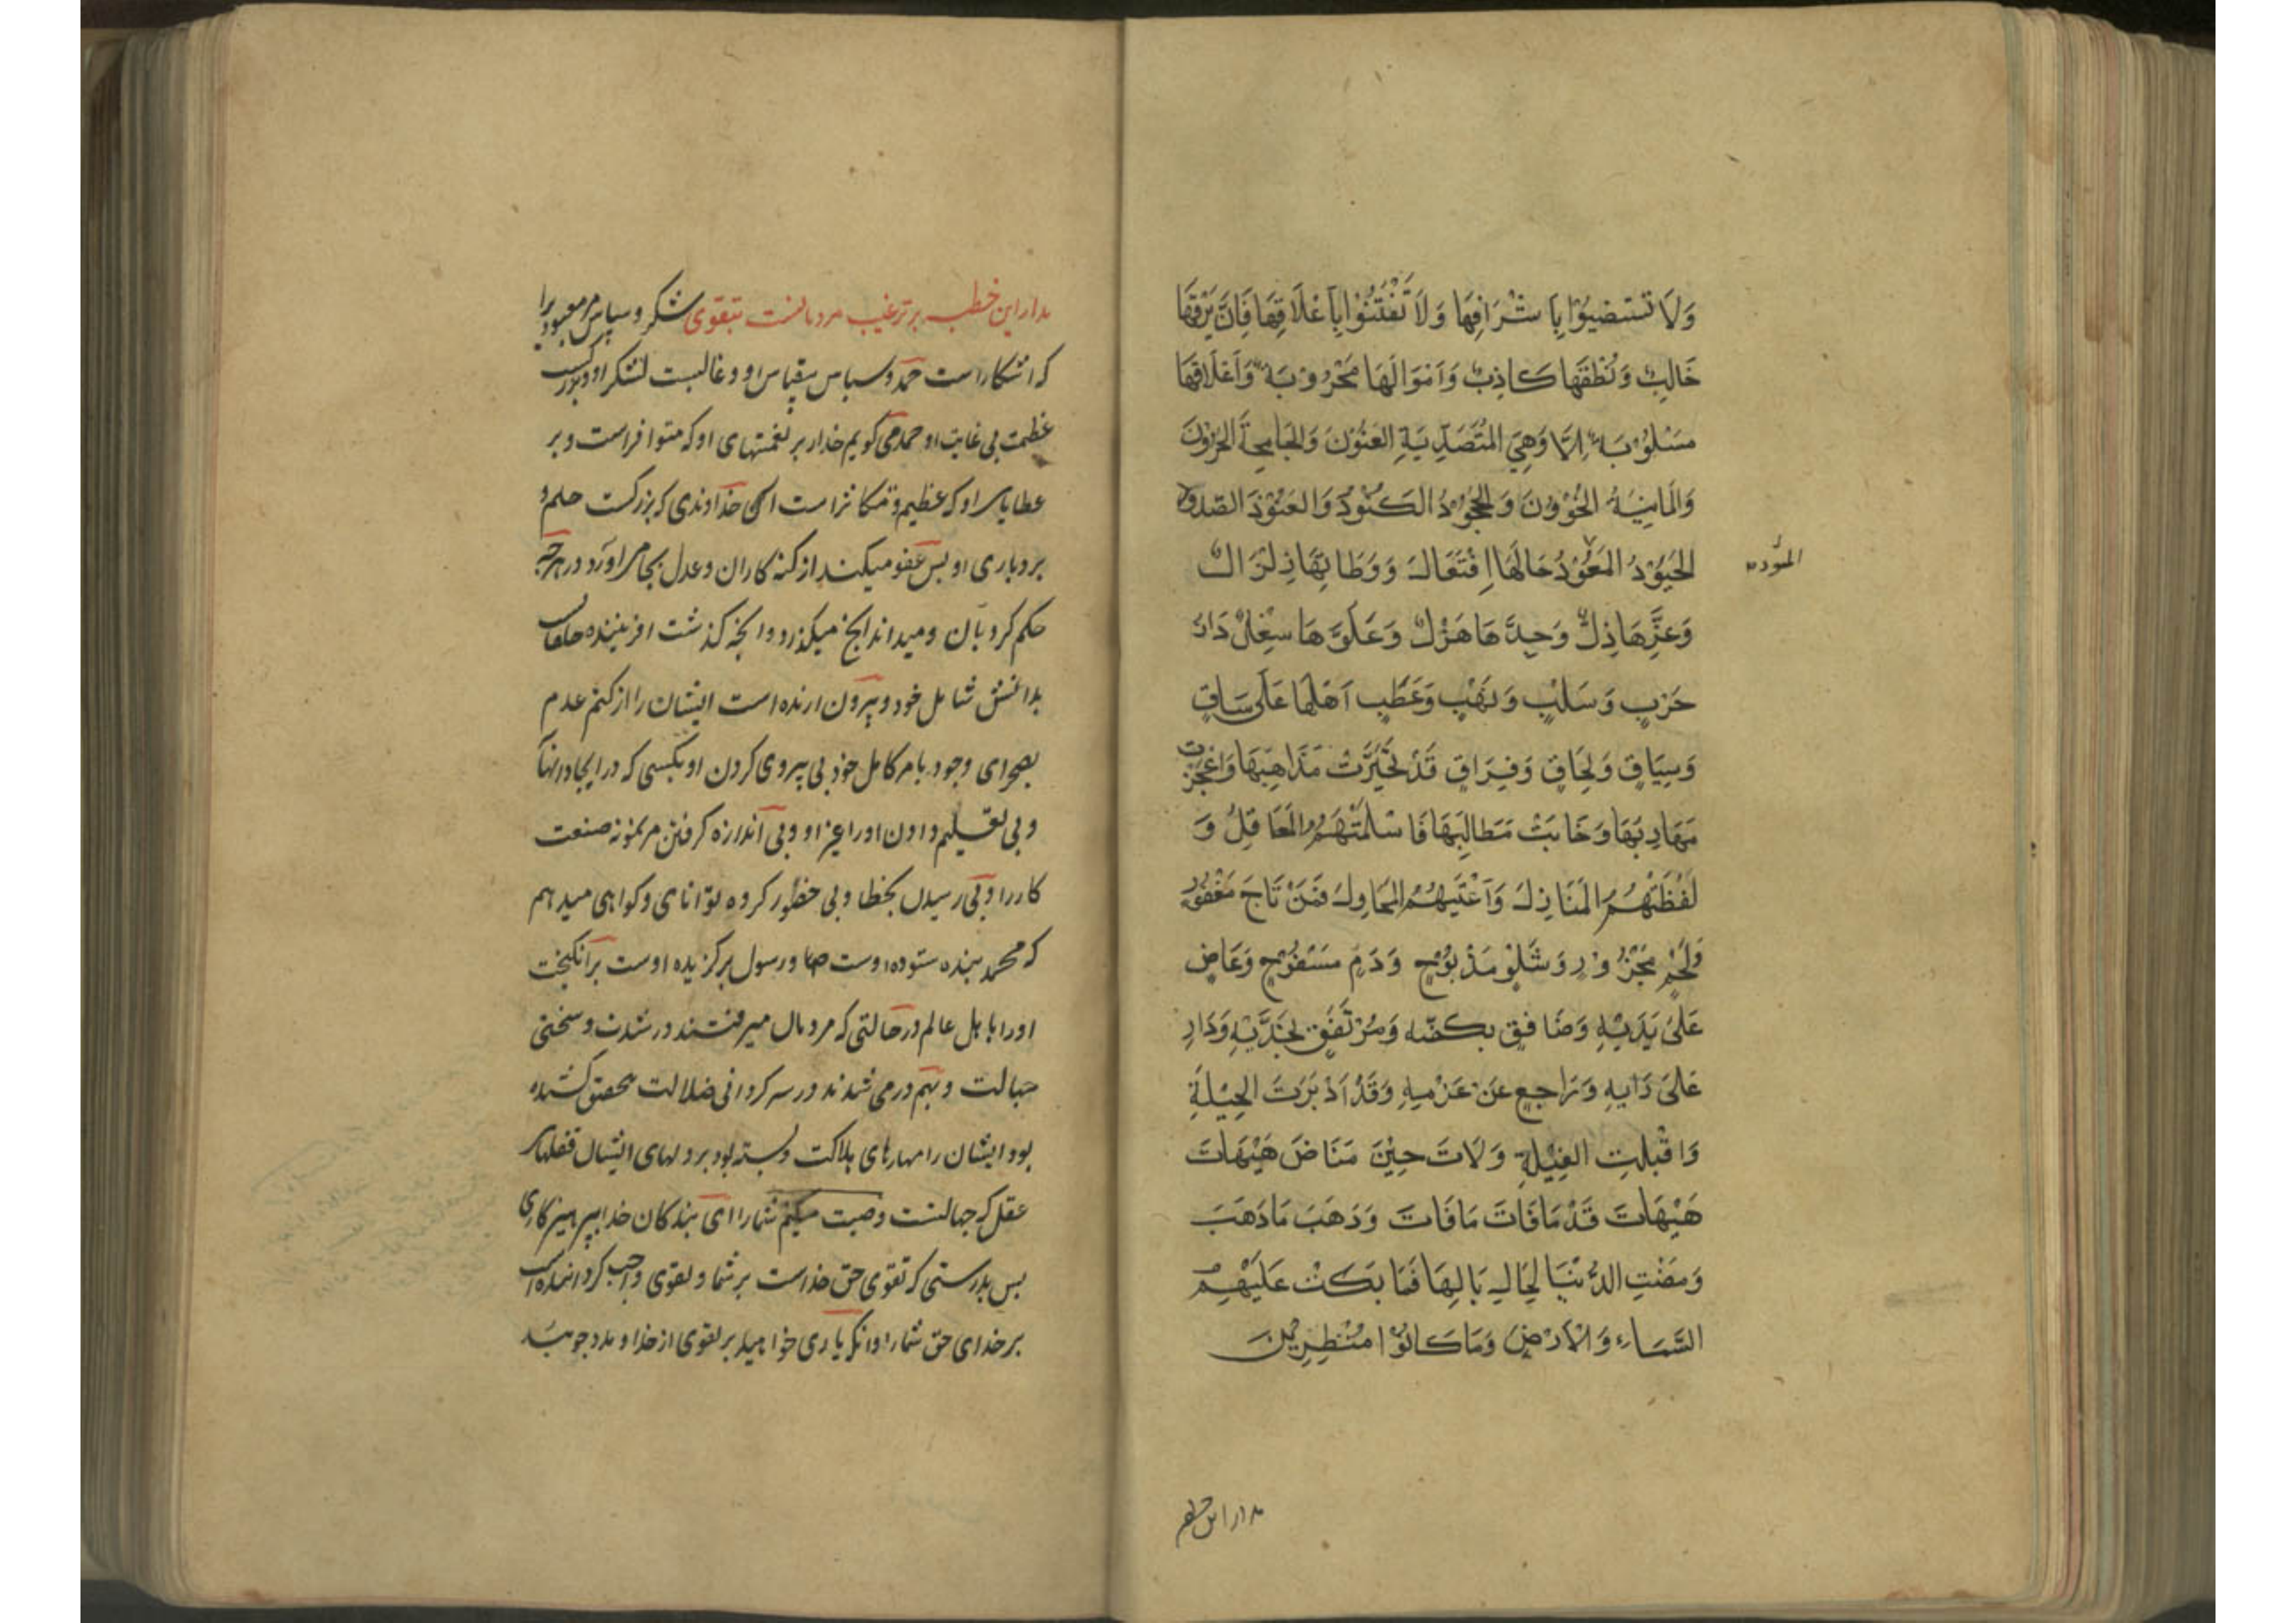 وَلَا تَسْتَضِيئُوا بِاَشْرَافِهَا وَلَا تَفْتَتِنُوا بِاَغْلَاقِهَا فَاِنَّ بَرْقَهَا
خَالِبٌ وَنُطْقَهَا كَاذِبٌ وَاَمْوَالَهَا مَحْرُوبَةٌ وَاَعْلَاقَهَا
مَسْلُوبَةٌ اَلَا وَهِيَ الْمُتَصَدِّيَةِ الْعَنُونَ وَالْجَامِحَةَ الْحَرُونَ
وَالْمَانِيَةُ الْخَؤُونَ وَالْجَحُودُ الْكَنُودُ وَالْعَنُودُ الصَّدُودُ
الْحَيُودُ الْمَيُودُ حَالُهَا اِفْتِعَالٌ وَوَطَاتُهَا زِلْزَالٌ
المیود
وَعِزُّهَا ذِلٌّ وَجِدُّهَا هَزْلٌ وَعُلُوُّهَا سِفْلٌ دَارُ
حَرْبٍ وَسَلْبٍ وَنَهْبٍ وَعَطَبٍ اَهْلُهَا عَلَى سَاقٍ
وَسِيَاقٍ وَلِحَاقٍ وَفِرَاقٍ قَدْ تَحَيَّرَتْ مَذَاهِبُهَا وَاَعْجَزَتْ
مَهَارِبُهَا وَخَابَتْ مَطَالِبُهَا فَاَسْلَمَتْهُمُ الْمَعَاقِلُ وَ
لَفَظَتْهُمُ الْمَنَازِلُ وَاَعْيَتْهُمُ الْمَحَاوِلُ فَمَنْ نَاجٍ مَعْقُورٍ
وَلَحْمٍ مَجْزُورٍ وَشَلْوٍ مَذْبُوحٍ وَدَمٍ مَسْفُوحٍ وَعَاضٍ
عَلَى يَدَيْهِ وَصَافِقٍ بِكَفَّيْهِ وَمُرْتَفِقٍ بِخَدَّيْهِ وَزَارٍ
عَلَى رَايِهِ وَرَاجِعٍ عَنْ عَزْمِهِ وَقَدْ اَدْبَرَتِ الْحِيْلَةِ
وَاَقْبَلَتِ الْغِيْلَةِ وَلَاتَ حِيْنَ مَنَاصٍ هَيْهَاتَ
هَيْهَاتَ قَدْ فَاتَ مَا فَاتَ وَذَهَبَ مَا ذَهَبَ
وَمَضَتِ الدُّنْيَا لِحَالِ بَالِهَا فَمَا بَكَتْ عَلَيْهِمُ
السَّمَاءِ وَالْاَرْضِ وَمَا كَانُوْا مُنْظَرِيْنَ
مدار این خطبه
مدار این خطبه بر ترغیب مردمانست بتقوی شکر و سپاس مر معبودیرا
که اشکاراست حمد و سپاس بیقیاس او و غالبست لشکر او و بزرگست
عظمت بی غایت او حمد می کویم خدا را بر نعمتهای او که متوافراست و بر
عطایای او که عظیم و متکاثراست آن خداوندی که بزرکست حلم و
بردباری او پس عفو میکند از کنه کاران و عدل بجا می اورد در هرچه
حکم کرد بآن و میداند انچه میکذرد و انچه کذشت افریننده خلقانست
بدانش شامل خود و بیرون ارنده است ایشان را از کتم عدم
بصحرای وجود بامر کامل خود بی پیروی کردن او بکسی که در ایجاد انها
و بی تعلیم دادن اورا غیر او و بی اندازه کرفتن مر نمونه صنعت
کار را و بی رسیدن بخطا و بی حضور کروه توانای و کواهی میدهم
که محمد بنده ستوده اوست ص و رسول برکزیده اوست برانکیخت
اورا باهل عالم در حالتی که مردمان میرفتند در شدت و سختی
جهالت و بهم درمی شدند در سرکردانی ضلالت بتحقیق کشیده
بود ایشان را مهارهای هلاکت و بسته بود بر دلهای ایشان قفلهای
عقل که جهالتست وصیت میکنم شما را ای بندکان خدا بپرهیزکاری
پس بدرستی که تقوی حق خداست بر شما و تقوی واجب کرداننده است
بر خدای حق شما را و انکه یاری خواهید بر تقوی از خدا و مدد جوئید